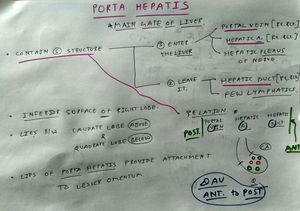 PORTA HEPATIS
MAIN GATE OF LIVER
CONTAIN 5 STRUCTURE
3 ENTER THE LIVER
PORTAL VEIN [Rt. & Lt.]
HEPATIC A. [Rt. & Lt.]
HEPATIC PLEXUS OF NERVE
2 LEAVE IT.
HEPATIC DUCT [Rt. & Lt.]
FEW LYMPHATICS
• INFERIOR SURFACE OF RIGHT LOBE.
• LIES B/W CAUDATE LOBE (ABOVE)
& QUADRATE LOBE (BELOW)
• LIPS OF PORTA HEPATIS PROVIDE ATTACHMENT
TO LESSER OMENTUM.
RELATION
POST.
PORTAL VEIN
HEPATIC
HEPATIC DUCT
ANT.
VAD
ANT. to POST.